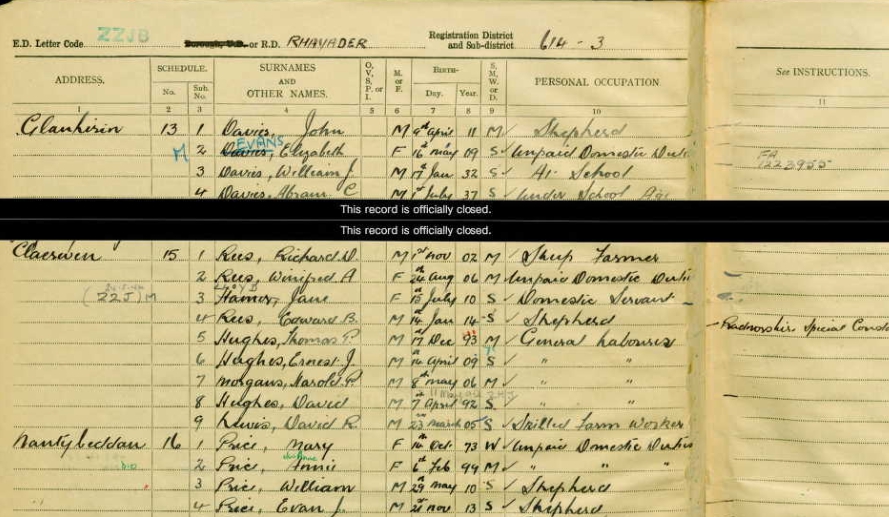 E.D. Letter Code ZZJB Borough, U.D. or R.D. RHAYADER Registration District and Sub-district 614 - 3
ADDRESS. SCHEDULE. No. Sub. No. SURNAMES AND OTHER NAMES. O, V, S, P, or I. M. or F. BIRTH- Day. Year. S. M. W. or D. PERSONAL OCCUPATION See INSTRUCTIONS.
1 2 3 4 5 6 7 8 9 10 11
13 1 Davies, John M 9th April 11 M Shepherd
EVANS
M 2 Davies, Elizabeth F 16th May 09 S Unpaid Domestic Duti
FA 1223955
3 Davis, William J. M 17 Jan 32 S At School
4 Davis, Abram C M 1st July 37 S Under School Age
This record is officially closed.
This record is officially closed.
Claerwen 15 1 Rees, Richard D. M 1st Nov 02 M Sheep Farmer
2 Rees, Winifred A F 24th Aug 06 M Unpaid Domestic Dutie
(ZZJ) M 3 Hamer, Jane F 15th July 10 S Domestic Servant
4 Rees, Edward B. M 14th Jan 14 S Shepherd
Radnorshire Special Const
5 Hughes, Thomas P. M 17th Dec 93 M General Labourer
6 Hughes, Ernest J. M 14th April 09 S " "
7 Morgans, Harold P. M 8th May 06 M " "
8 Hughes, David M 7 April 92 S " "
9 Lewis, David R. M 23 March 05 S Skilled Farm Worker
Nantybeddau 16 1 Price, Mary F 14th Oct 73 W Unpaid Domestic Dutie
2 Price, Annie F 6th Feb 99 M " "
3 Price, William M 29th May 10 S Shepherd
4 Price, Evan J. M 21st Nov 13 S Shepherd